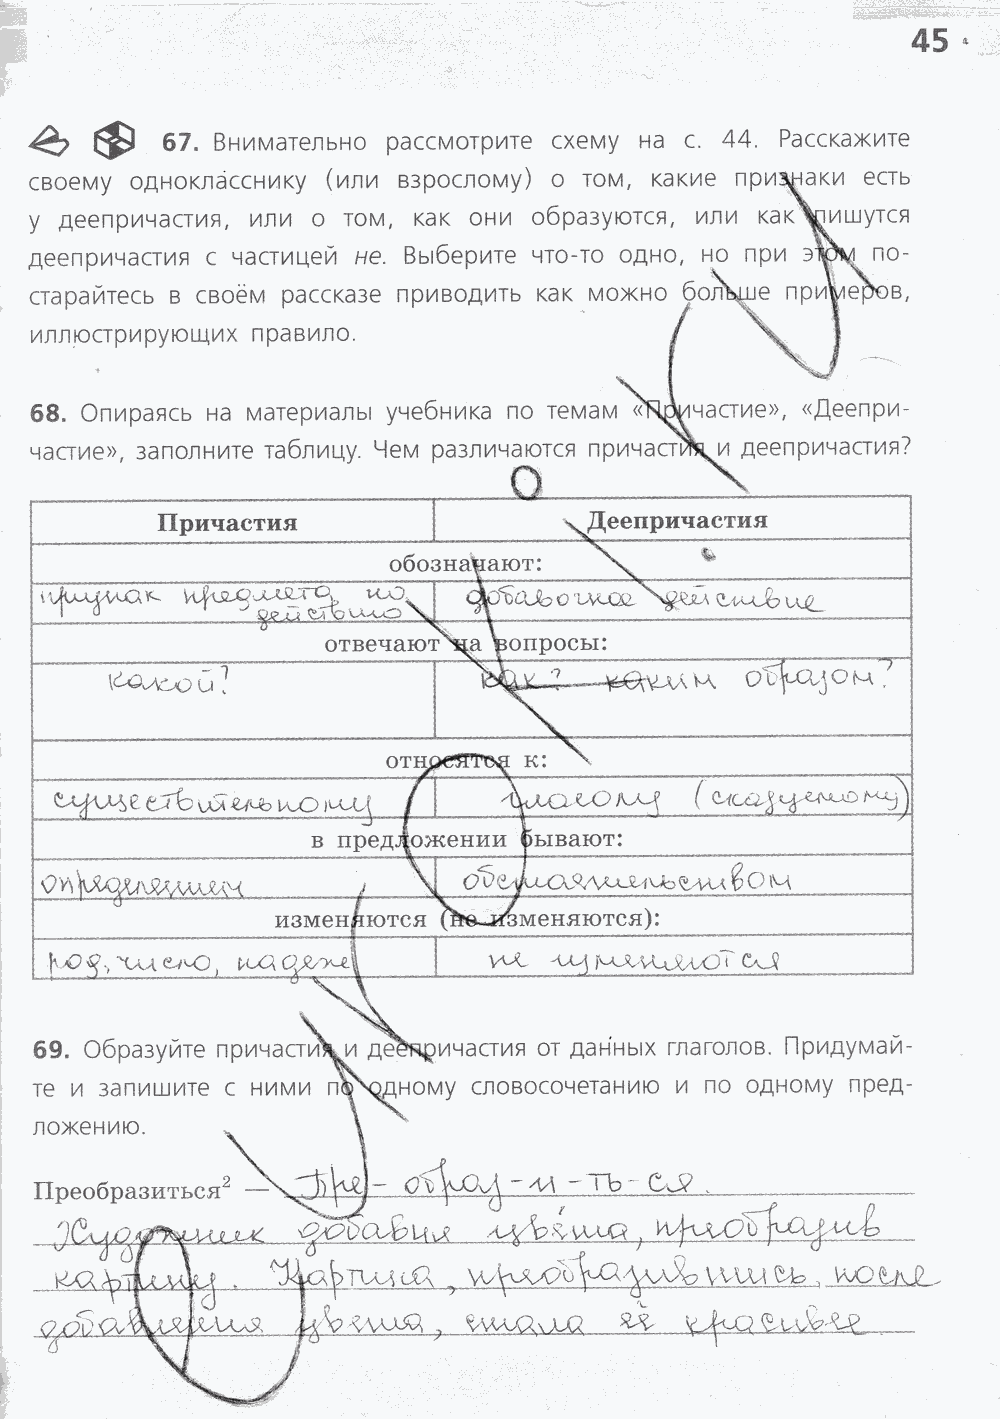 45
67. Внимательно рассмотрите схему на с. 44. Расскажите
своему однокласснику (или взрослому) о том, какие признаки есть
у деепричастия, или о том, как они образуются, или как пишутся
деепричастия с частицей не. Выберите что-то одно, но при этом по-
старайтесь в своём рассказе приводить как можно больше примеров,
иллюстрирующих правило.
68. Опираясь на материалы учебника по темам «Причастие», «Деепри-
частие», заполните таблицу. Чем различаются причастия и деепричастия?
Причастия Деепричастия
обозначают:
признак предмета по действию добавочное действие
отвечают на вопросы:
какой? как? каким образом?
относятся к:
существительному глаголу (сказуемому)
в предложении бывают:
определением обстоятельством
изменяются (не изменяются):
род, число, падеж не изменяются
69. Образуйте причастия и деепричастия от данных глаголов. Придумай-
те и запишите с ними по одному словосочетанию и по одному пред-
ложению.
Преобразиться² — Пре-образ-и-ть-ся.
Художник добавил цвета, преобразив
картину. Картина, преобразившись после
добавления цвета, стала ещё красивее